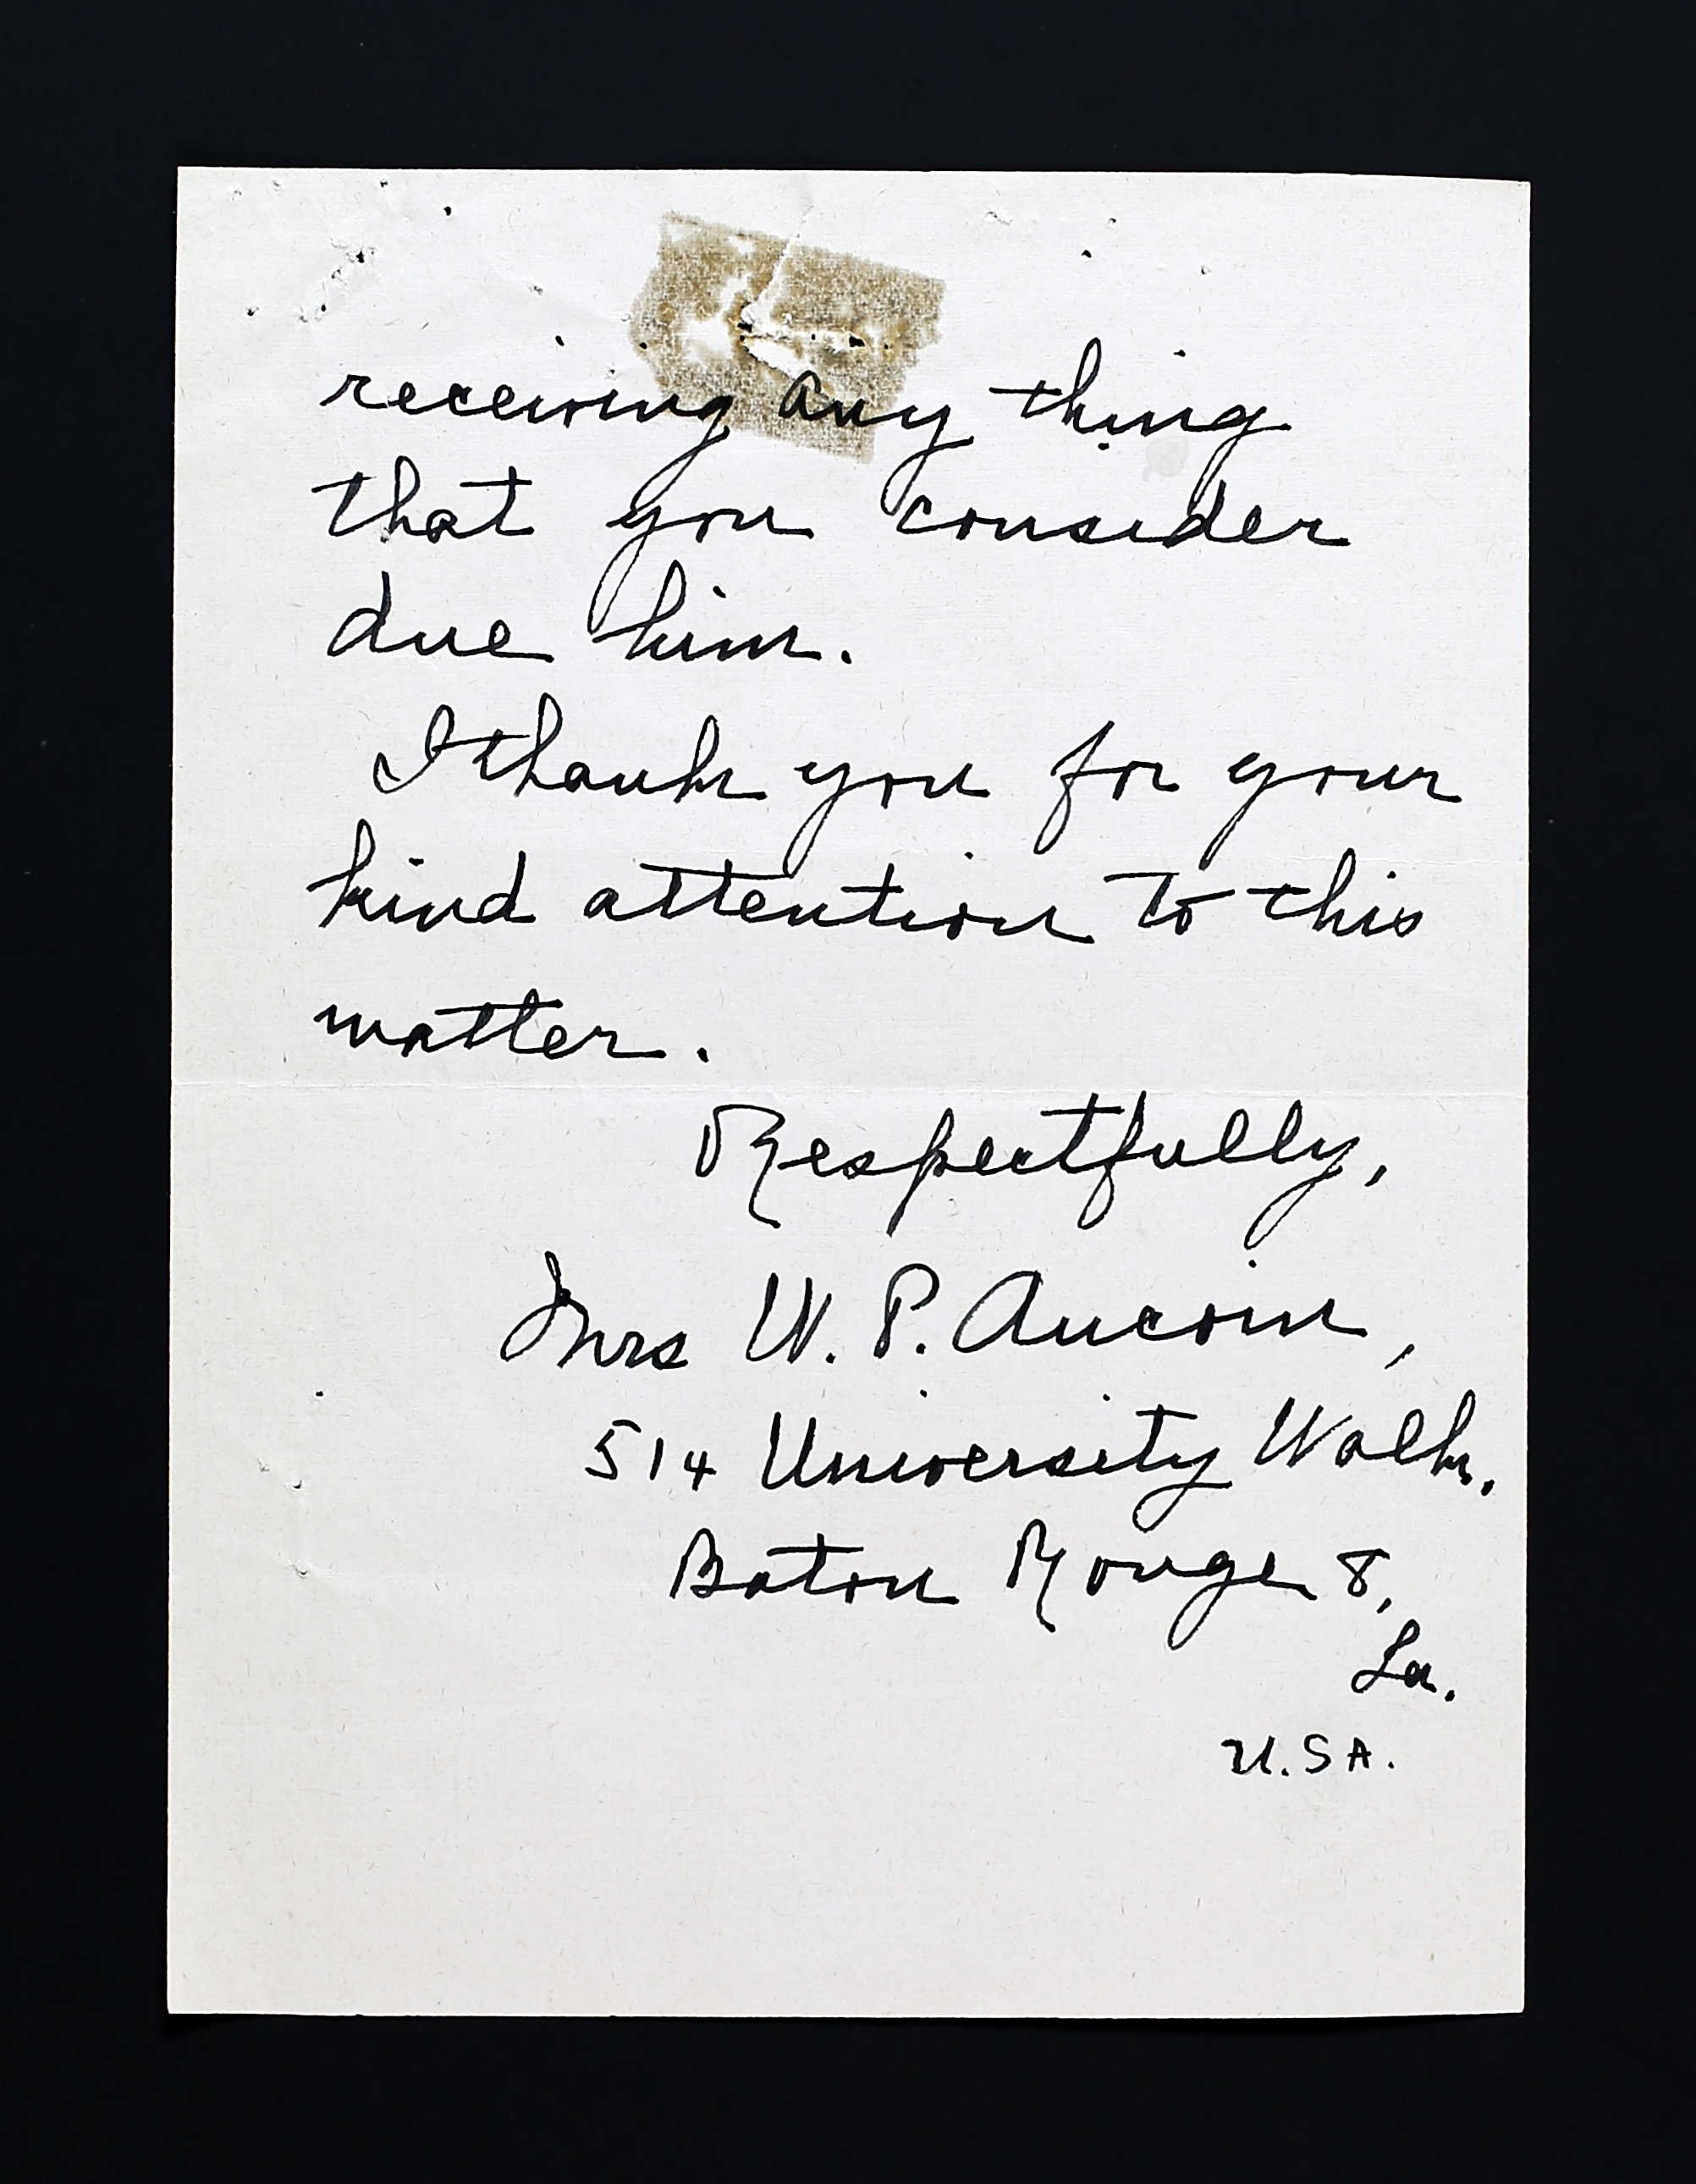 receiving any thing
that you consider
due him.
I thank you for your
kind attention to this
matter.
Respectfully,
Mrs W. P. Aucoin,
514 University Walk.
Baton Rouge 8,
La.
U.SA.